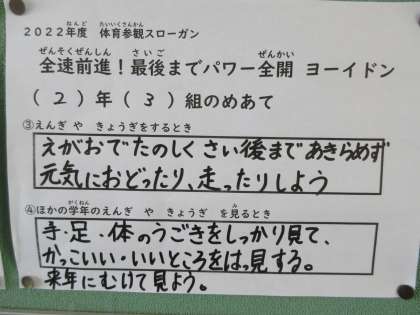 2022年度 体育参観スローガン
全速前進！最後までパワー全開 ヨーイドン
（2）年（3）組のめあて
③えんぎ や きょうぎをするとき
えがおでたのしく さい後まであきらめず
元気におどったり、走ったりしよう
④ほかの学年のえんぎ や きょうぎ を見るとき
手・足・体のうごきをしっかり見て、
かっこいい・いいところをはっ見する。
来年にむけて見よう。